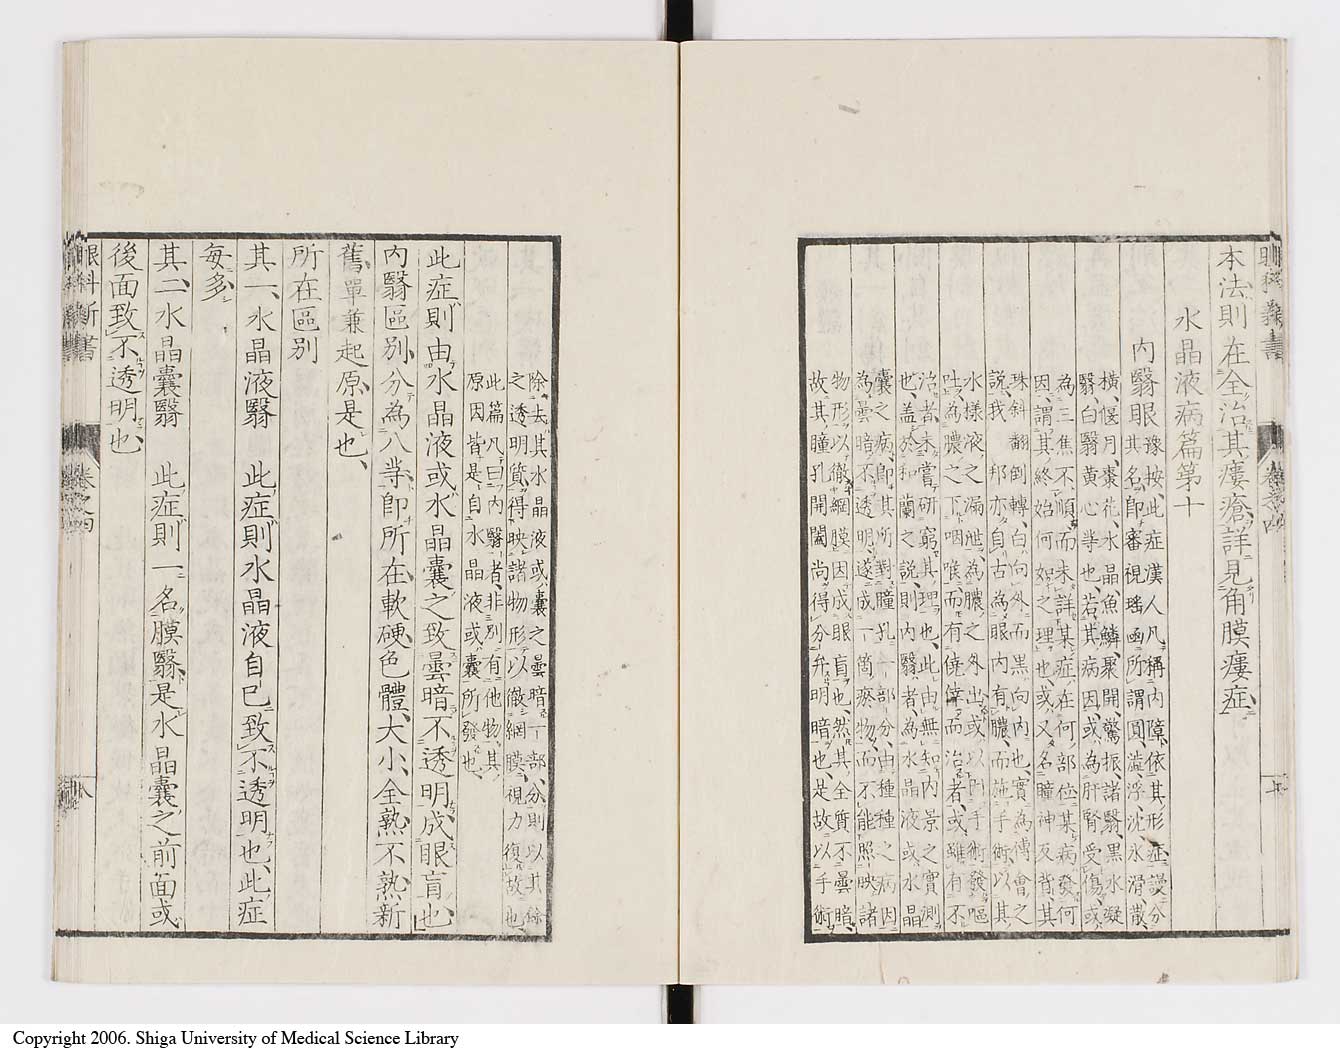 眼科新書
卷之四
本法則在全治其瘻瘡詳見角膜瘻症
水晶液病篇第十
内翳眼豫按此症漢人凡稱内障依其形症謾分
其名即審視瑤函所謂圓溢浮沈氷滑散
橫偃月棗花水晶魚鱗聚開驚振諸翳黑水凝
翳白翳黃心等也若其病因或為肝腎受傷或
為三焦不順而未詳某症在何部位某病發何
因謂其終始何如之理也或又名瞳神反背其
珠斜翻倒轉白向外而黑向内也實為傅會之
說我 邦亦自古為眼内有膿而施手術以其
水樣液之漏泄為膿之外出或以内手術發嘔
吐為膿之下咽喉而有僥倖而治者或雖有不
治者未嘗研窮其理也此由無知内景之實測
也蓋於和蘭之說則内翳者為水晶液或水晶
囊之病即其所對瞳孔一部分由種種之病因
為曇暗不透明遂成一箇瘀物而不能照映諸
物形以徹網膜因成眼盲也然其全質不曇暗
故其瞳孔開闔尚得分弁明暗也是故以手術
除去其水晶液或囊之曇暗一部分則以其餘
之透明質得映諸物形以徹網膜視力復故也
此篇凡曰内翳者非別有他物其
原因皆是自水晶液或囊所發也
此症則由水晶液或水晶囊之致曇暗不透明成眼盲也
内翳區別分為八等即所在軟硬色體大小全熟不熟新
舊單兼起原是也
所在區別
其一水晶液翳 此症則水晶液自己致不透明也此症
每多
其二水晶囊翳 此症則一名膜翳是水晶囊之前面或
後面致不透明也
眼科新書
卷之四
八
Copyright 2006. Shiga University of Medical Science Library